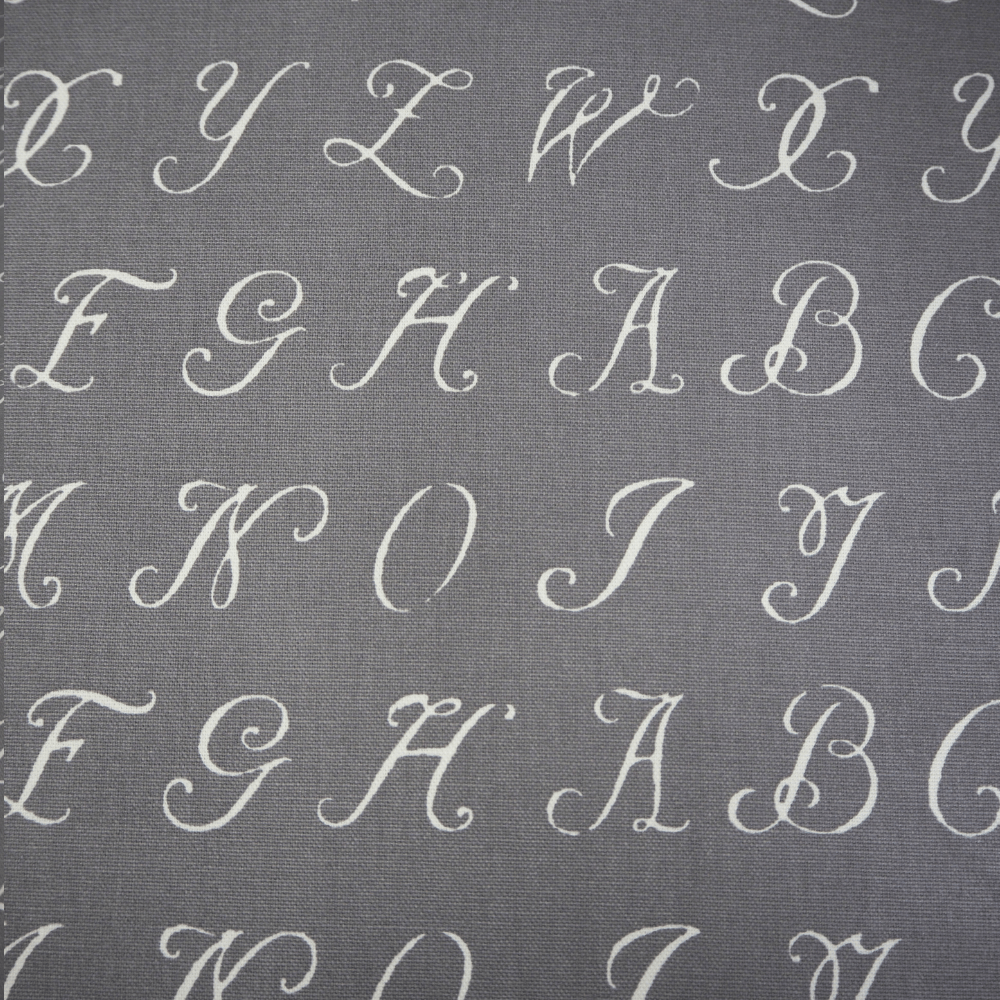 X Y Z W X Y
F G H A B C
M N O I J
F G H A B C
N O I J